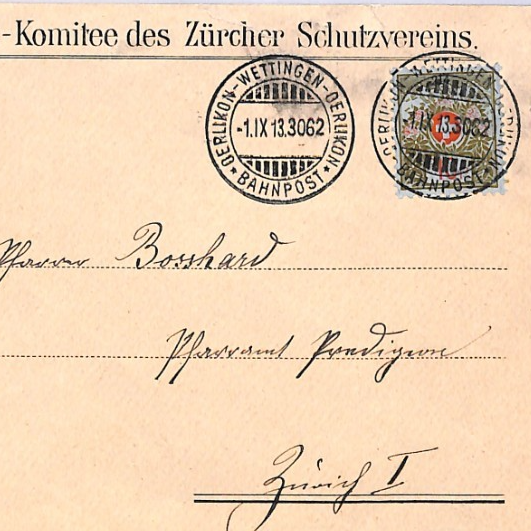 -Komitee des Zürcher Schutzvereins.
OERLIKON-WETTINGEN-OERLIKON
-1.IX 13.3062
* BAHNPOST *
OERLIKON-WETTINGEN-OERLIKON
-1.IX 13.3062
* BAHNPOST *
Pfarrer Bosshard
Pfarramt Predigern
Zürich I